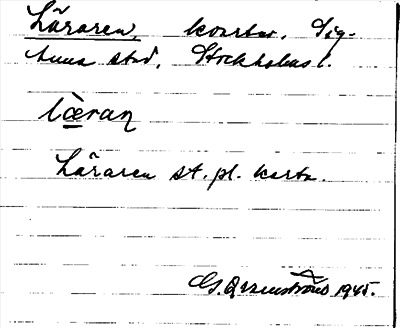 Läraren, kvarter, Sig-
tuna stad, Stockholms l.
læran
Läraren st. pl. karta.
1945.